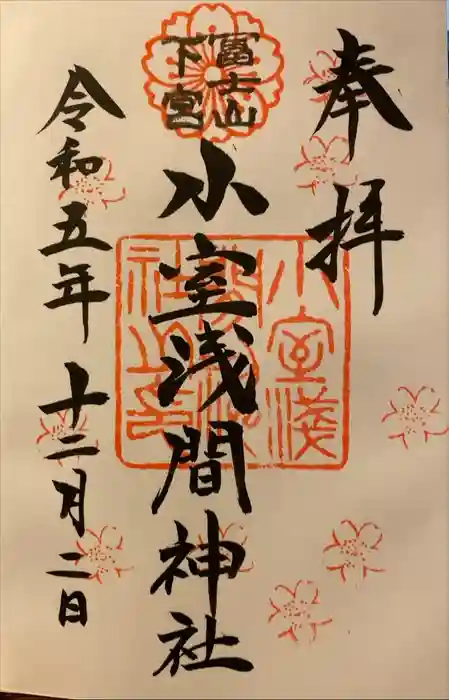 奉拝
冨士山
下宮
小室浅間神社
小室浅
間神
社之印
令和五年十二月二日